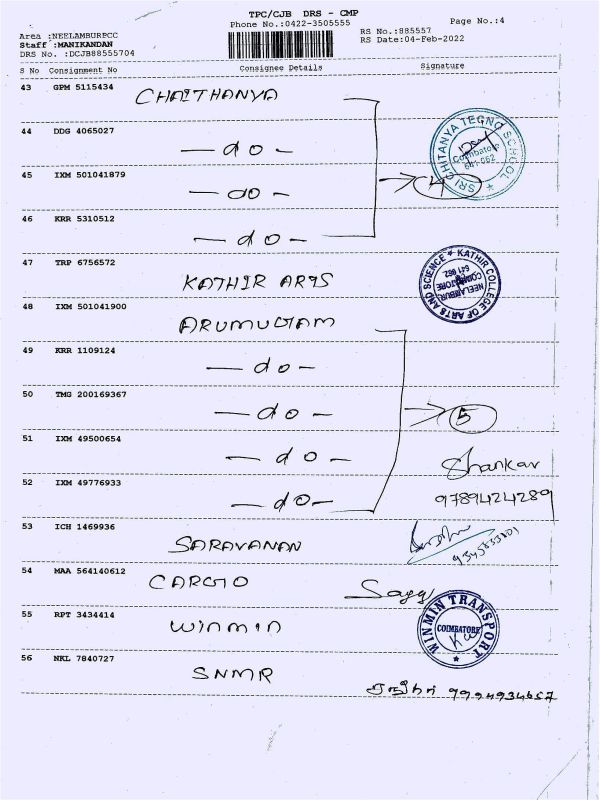 TPC/CJB DRS - CMP
Phone No.:0422-3505555
Page No.:4
Area :NEELAMBURPCC
RS No.:885557
Staff :MANIKANDAN
RS Date:04-Feb-2022
DRS No. :DCJB88555704
S No Consignment No Consignee Details Signature
43 GPM 5115434 CHAITHANYA
44 DDG 4065027 — do —
SRI CHITANYA TECNO SCHOOL
Coimbatore
641 062
45 IXM 501041879 — do — → 4
46 KRR 5310512 — do —
47 TRP 6756572 KATHIR ARTS
KATHIR COLLEGE OF ARTS AND SCIENCE
NEELAMBUR
COIMBATORE
641 062
48 IXM 501041900 ARUMUGAM
49 KRR 1109124 — do —
50 TMG 200169367 — do — → 5
51 IXM 49500654 — do —
Shankar
52 IXM 49776933 — do — 9789424289
53 ICH 1469936 SARAVANAN
54 MAA 564140612 CARGO
55 RPT 3434414 WINMIN
WINMIN TRANSPORT
COIMBATORE
56 NKL 7840727 SNMR